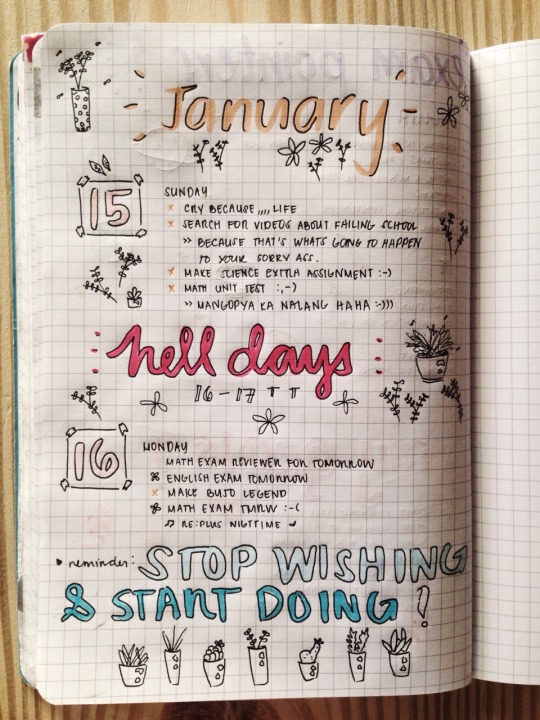 January
15
SUNDAY
x CRY BECAUSE ,,,, LIFE
x SEARCH FOR VIDEOS ABOUT FAILING SCHOOL
>> BECAUSE THAT'S WHATS GOING TO HAPPEN
TO YOUR SORRY ASS.
x MAKE SCIENCE EXTRA ASSIGNMENT :-)
x MATH UNIT TEST :,-)
>> MANGOPYA KA NALANG HAHA :-)))
hell days
16-17 T T
16
MONDAY
MATH EXAM REVIEWER FOR TOMORROW
ENGLISH EXAM TOMORROW
x MAKE BUJO LEGEND
MATH EXAM TMRW :-(
♫ RE:PLUS NIGTTIME
reminder: STOP WISHING
& START DOING!